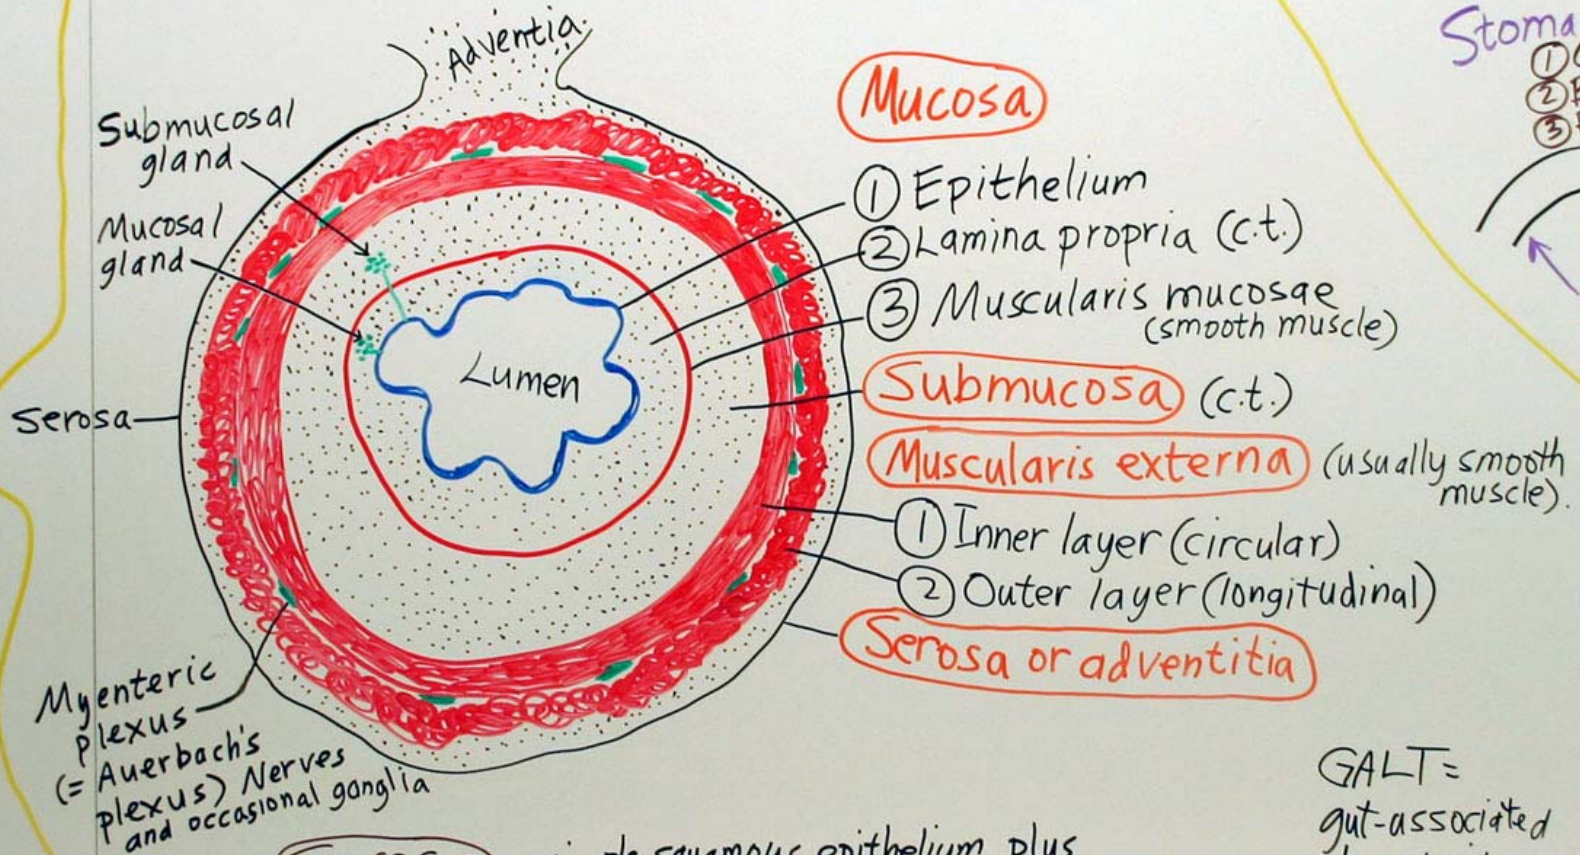 Adventia
Submucosal
gland
Mucosal
gland
Serosa
Myenteric
plexus
(= Auerbach's
plexus) Nerves
and occasional ganglia
Lumen
Mucosa
① Epithelium
② Lamina propria (c.t.)
③ Muscularis mucosae
(smooth muscle)
Submucosa (c.t.)
Muscularis externa (usually smooth
muscle).
① Inner layer (circular)
② Outer layer (longitudinal)
Serosa or adventitia
Stoma
①
②
③
GALT =
gut-associated
squamous epithelium plus